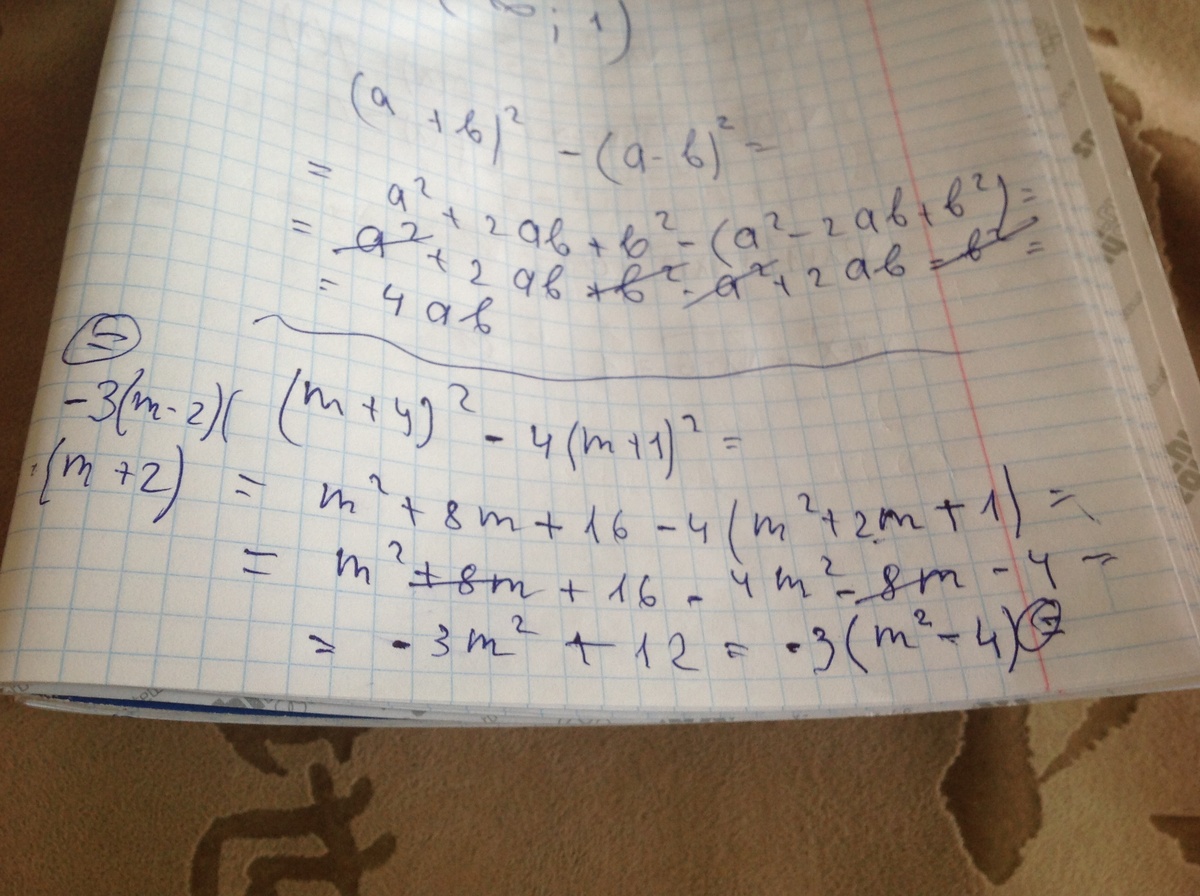 ( ∞ ; 1)
(a + b)² - (a - b)² =
= a² + 2ab + b² - (a² - 2ab + b²) =
= a² + 2ab + b² - a² + 2ab - b² =
= 4ab
(=)
-3(m-2)(
·(m+2)
(m+4)² - 4(m+1)² =
= m² + 8m + 16 - 4(m² + 2m + 1) =
= m² + 8m + 16 - 4m² - 8m - 4 =
= -3m² + 12 = -3(m² - 4) (=)